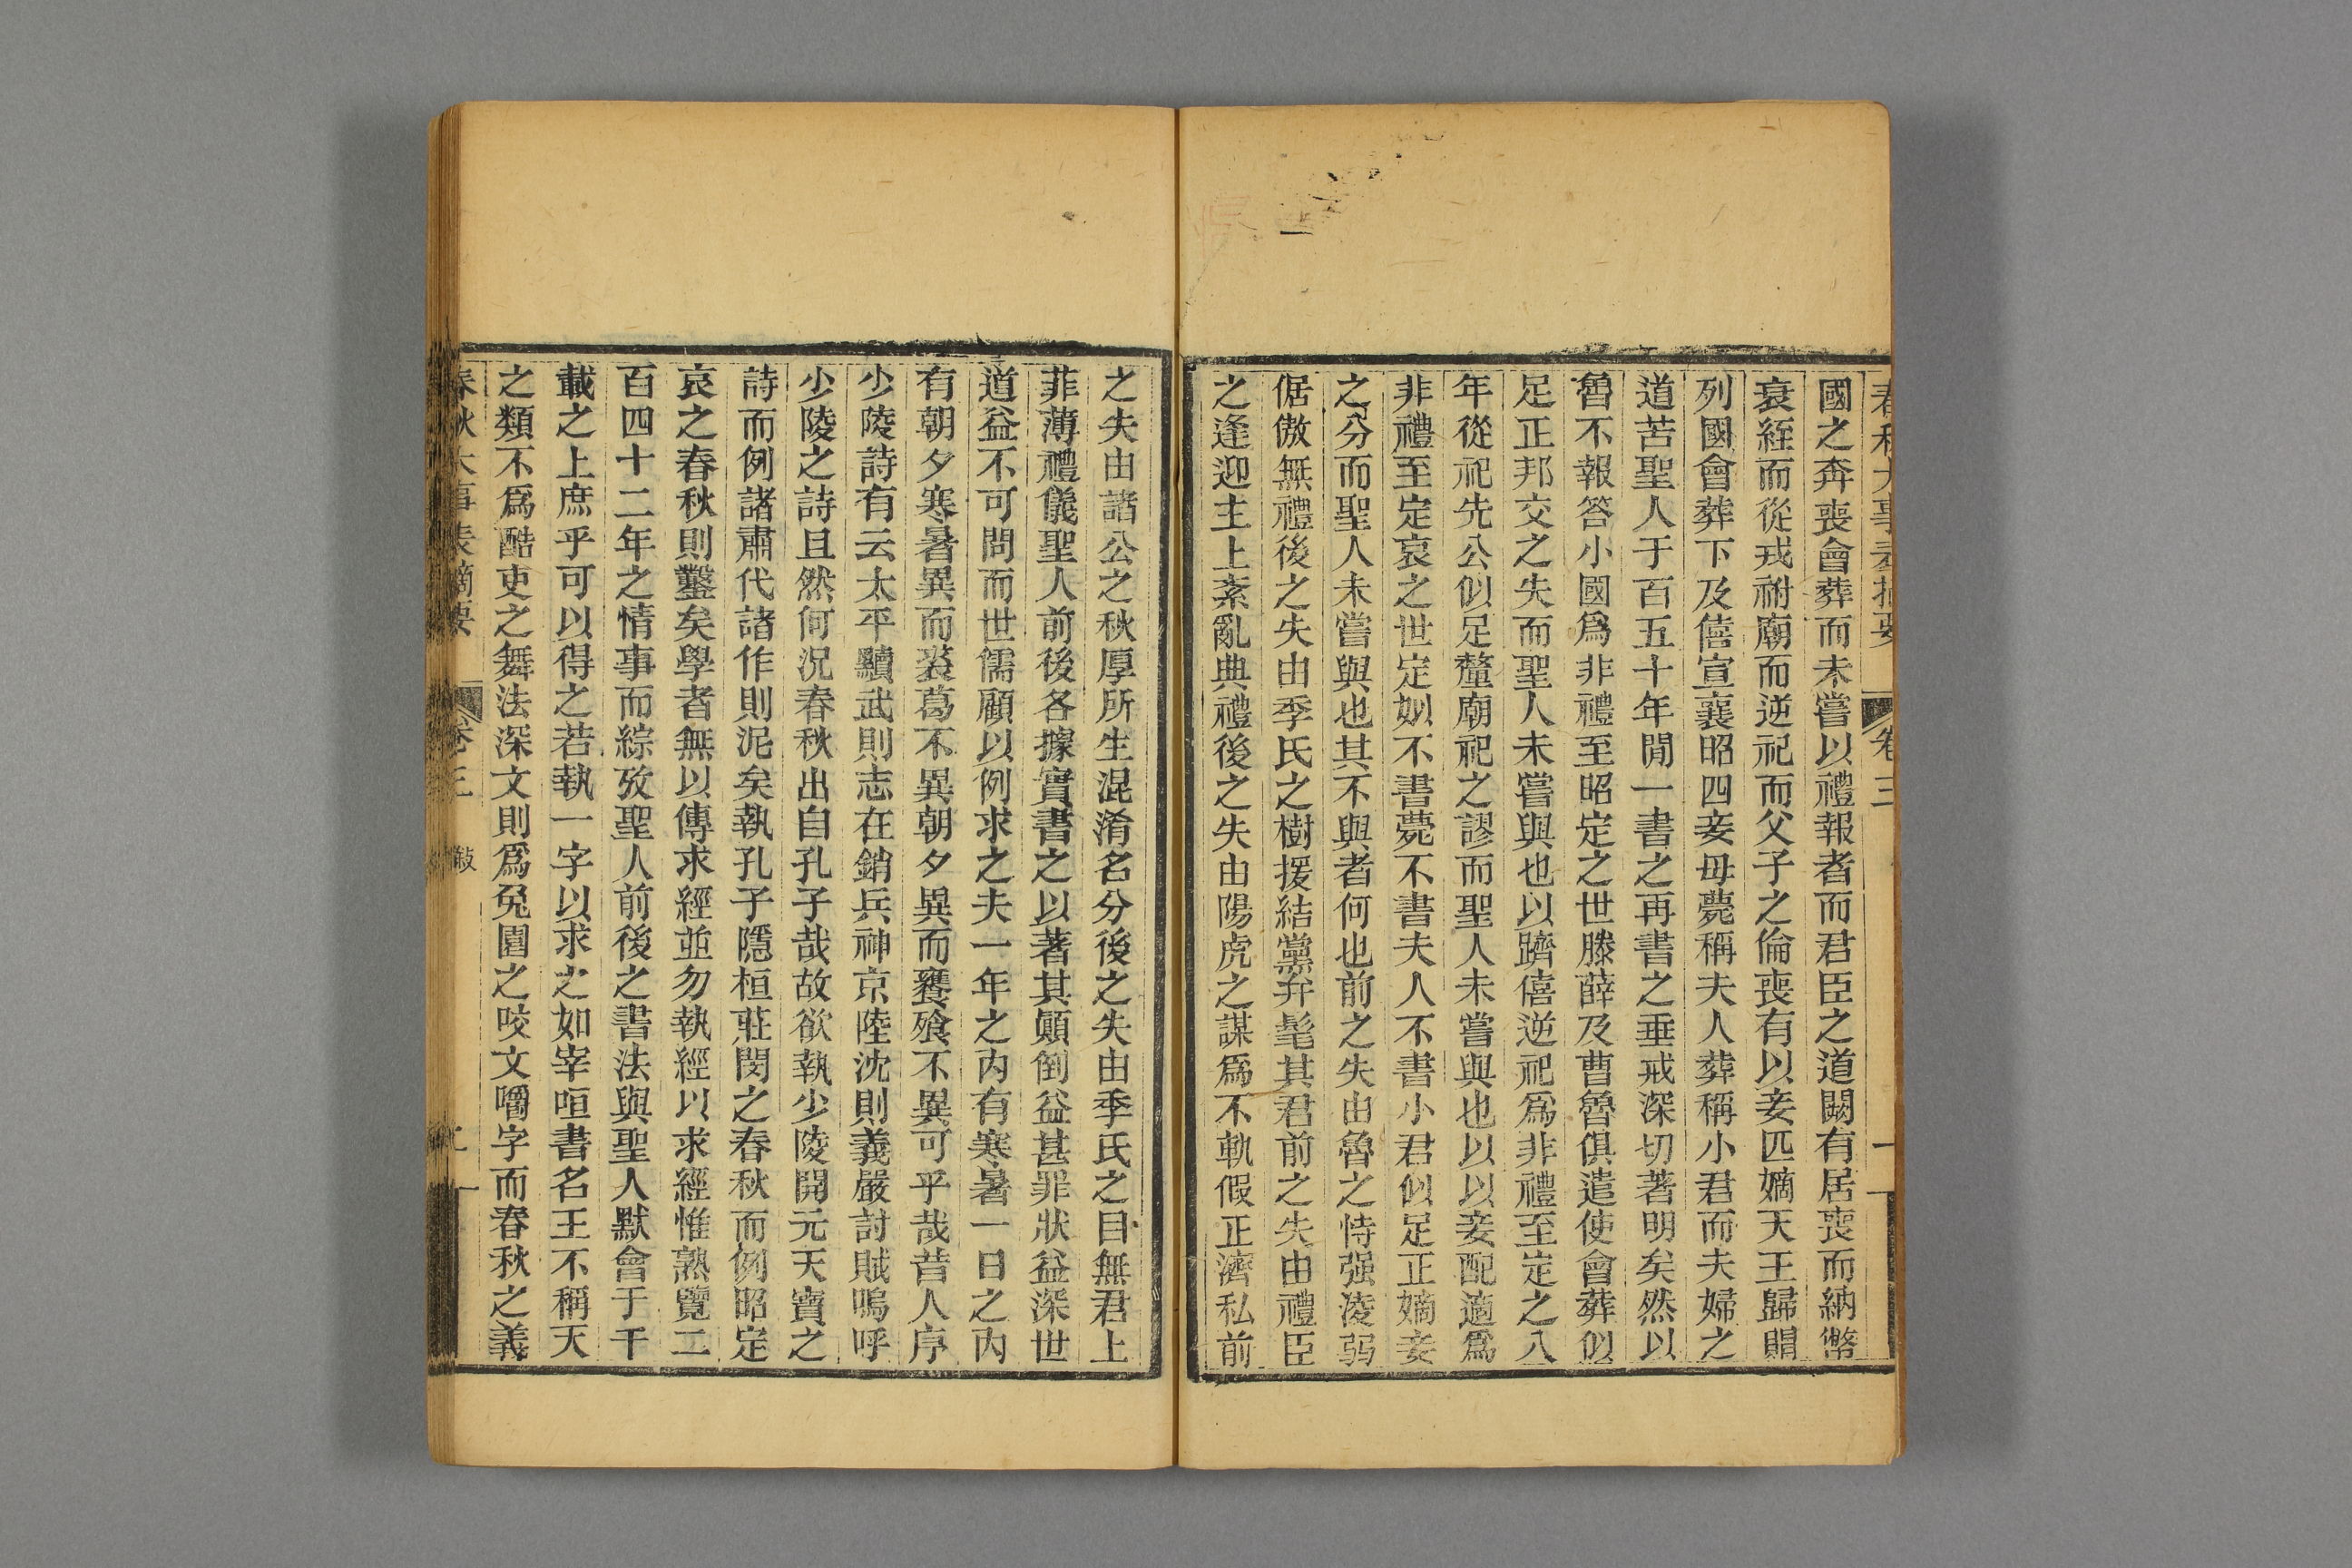 春秋大事表摘要 卷三 一
國之奔喪會葬而未嘗以禮報者而君臣之道闕有居喪而納幣
衰絰而從戎祔廟而逆祀而父子之倫喪有以妾匹嫡天王歸賵
列國會葬下及僖宣襄昭四妾母薨稱夫人葬稱小君而夫婦之
道苦聖人于百五十年閒一書之再書之垂戒深切著明矣然以
魯不報答小國爲非禮至昭定之世滕薛及曹魯俱遣使會葬似
足正邦交之失而聖人未嘗與也以躋僖逆祀爲非禮至定之八
年從祀先公似足釐廟祀之謬而聖人未嘗與也以以妾配適爲
非禮至定哀之世定姒不書薨不書夫人不書小君似足正嫡妾
之分而聖人未嘗與也其不與者何也前之失由魯之恃强淩弱
倨傲無禮後之失由季氏之樹援結黨弁髦其君前之失由禮臣
之逢迎主上紊亂典禮後之失由陽虎之謀爲不軌假正濟私前
之失由諸公之秋厚所生混淆名分後之失由季氏之目無君上
菲薄禮儀聖人前後各據實書之以著其顚倒益甚罪狀益深世
道益不可問而世儒顧以例求之夫一年之內有寒暑一日之內
有朝夕寒暑異而裘葛不異朝夕異而饔飱不異可乎哉昔人序
少陵詩有云太平黷武則志在銷兵神京陸沈則義嚴討賊嗚呼
少陵之詩且然何況春秋出自孔子哉故欲執少陵開元天寶之
詩而例諸肅代諸作則泥矣執孔子隱桓莊閔之春秋而例昭定
哀之春秋則鑿矣學者無以傳求經並勿執經以求經惟熟覽二
百四十二年之情事而綜攷聖人前後之書法與聖人默會于千
載之上庶乎可以得之若執一字以求之如宰咺書名王不稱天
之類不爲酷吏之舞法深文則爲兔園之咬文嚼字而春秋之義
春秋大事表摘要 卷三 敍